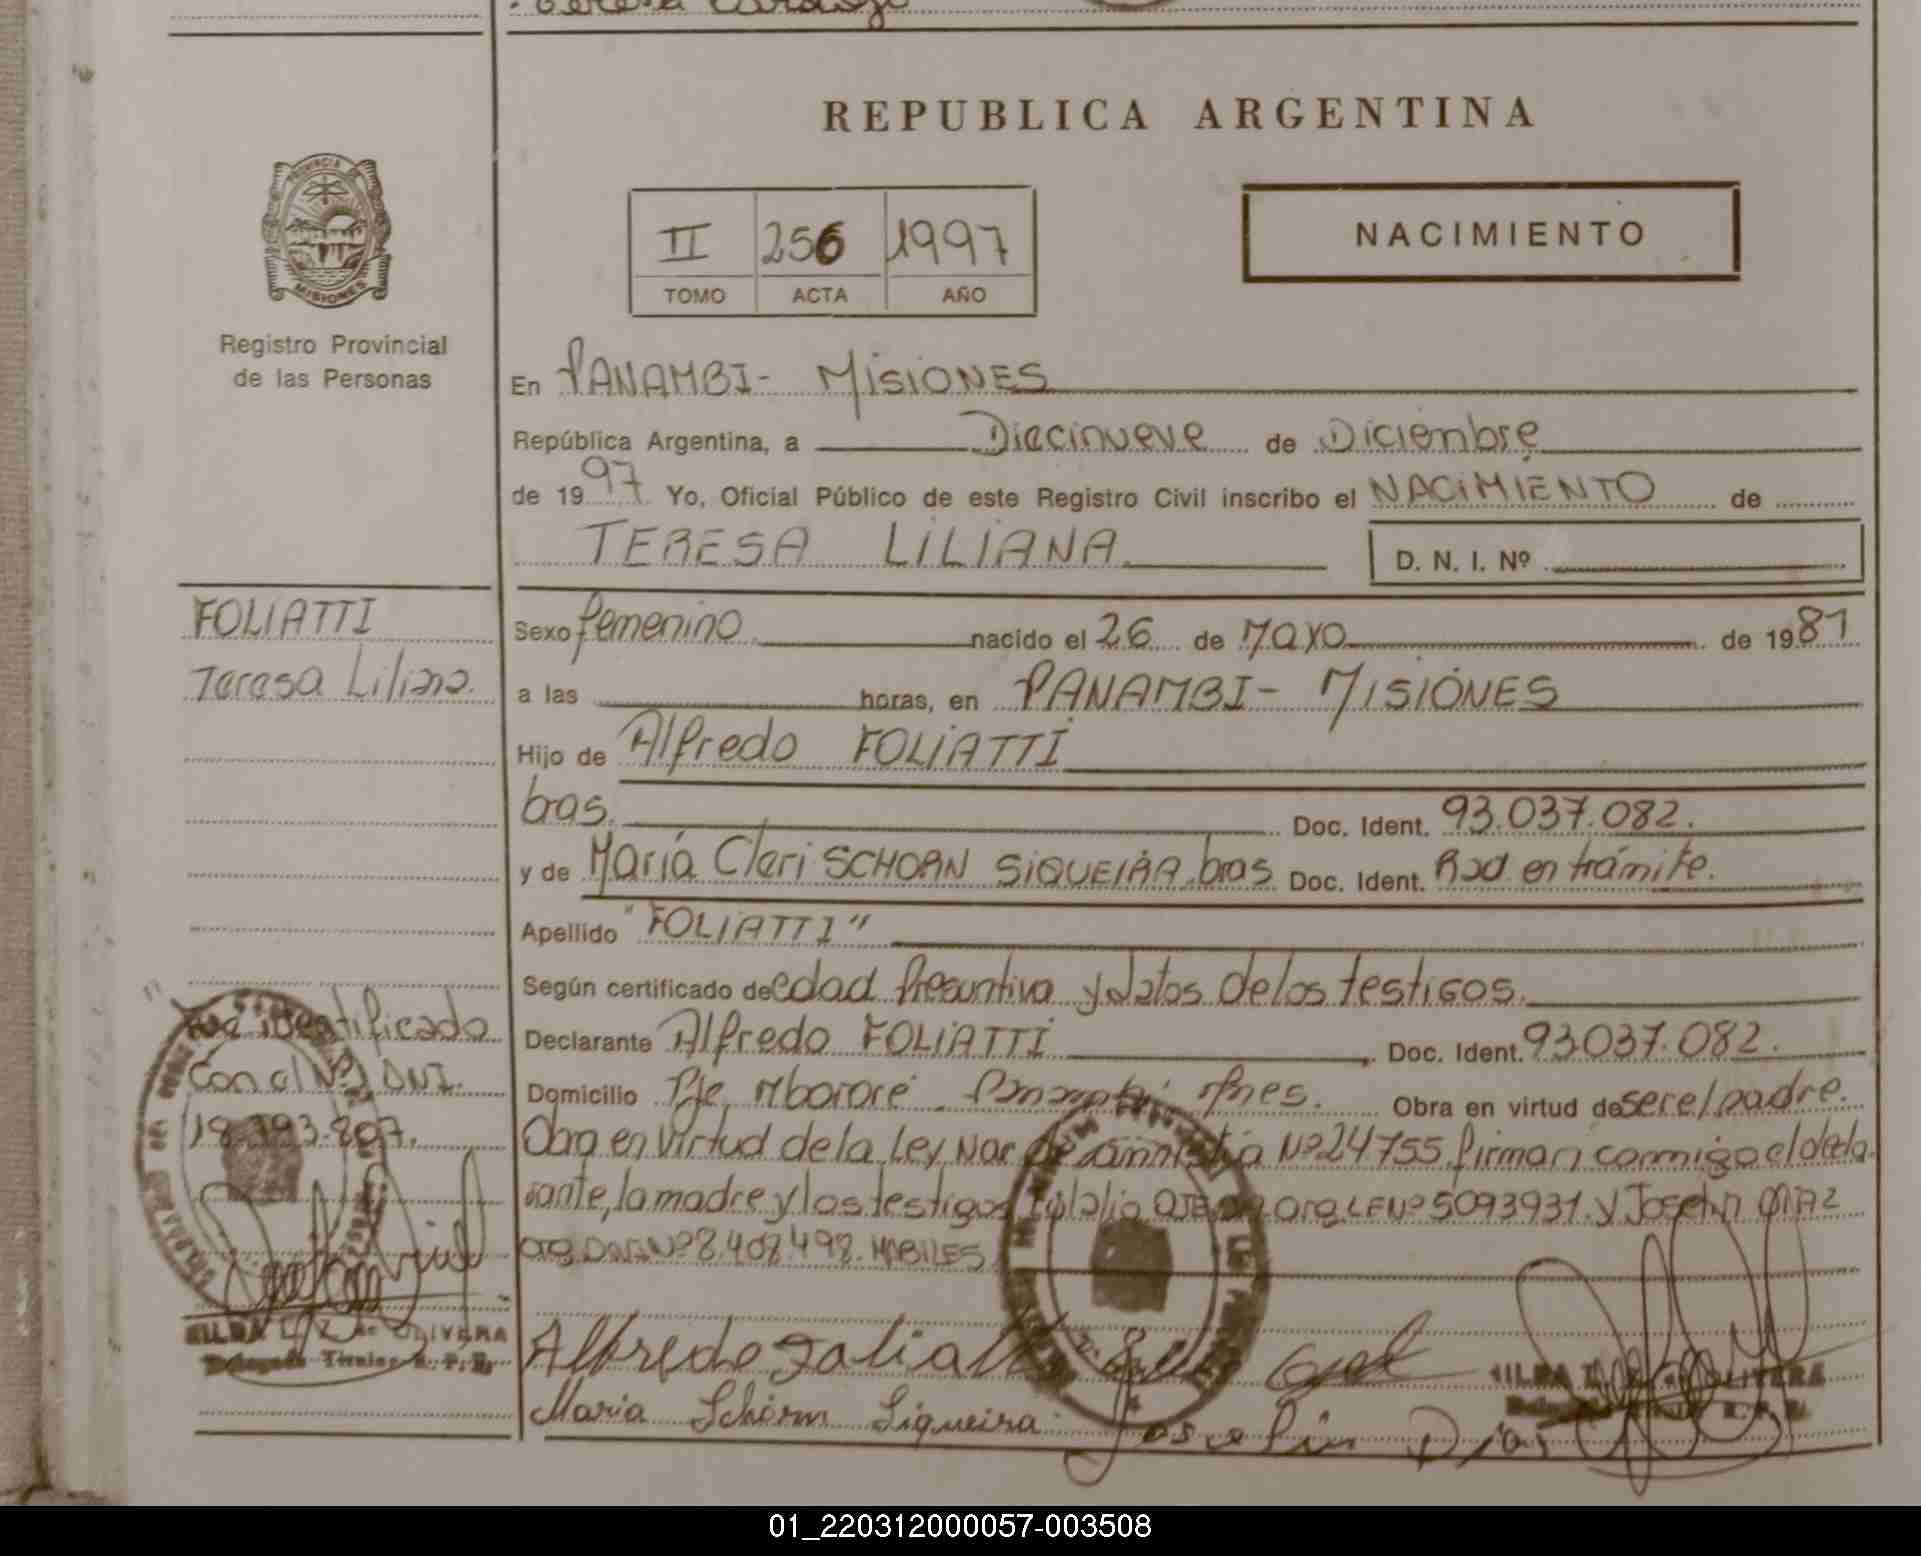 REPUBLICA ARGENTINA
PROVINCIA DE
MISIONES
Registro Provincial
de las Personas
II 256 1997
TOMO ACTA AÑO
NACIMIENTO
En PANAMBI- MISIONES
República Argentina, a Diecinueve de Diciembre
de 1997 Yo, Oficial Público de este Registro Civil inscribo el NACIMIENTO de
TERESA LILIANA
D. N. I. Nº
FOLIATTI
Teresa Liliana.
Sexo femenino nacido el 26 de Mayo de 1981
a las horas, en PANAMBI- MISIONES
Hijo de Alfredo FOLIATTI
bras. Doc. Ident. 93.037.082.
y de María Cleri SCHORN SIQUEIRA. bras Doc. Ident. Rad en trámite.
Apellido "FOLIATTI"
Según certificado de edad Presuntiva y datos de los testigos.
Declarante Alfredo FOLIATTI Doc. Ident. 93037.082.
Domicilio Pje, Mbororé. Panambi Mnes. Obra en virtud de ser el padre.
Obra en virtud de la Ley Nac de amnistia Nº 24755 firman conmigo el decla
rante, la madre y los testigos arg LE Nº 5093931. y Joselin DIAZ
arg. DNI. Nº 8.408.498. HABILES.
identificado
con el Nº DNI.
Alfredo Foliatti
Maria Schorn Siqueira
Joselin Dias
OLIVERA
Delegada Titular R. P. P.
01_220312000057-003508